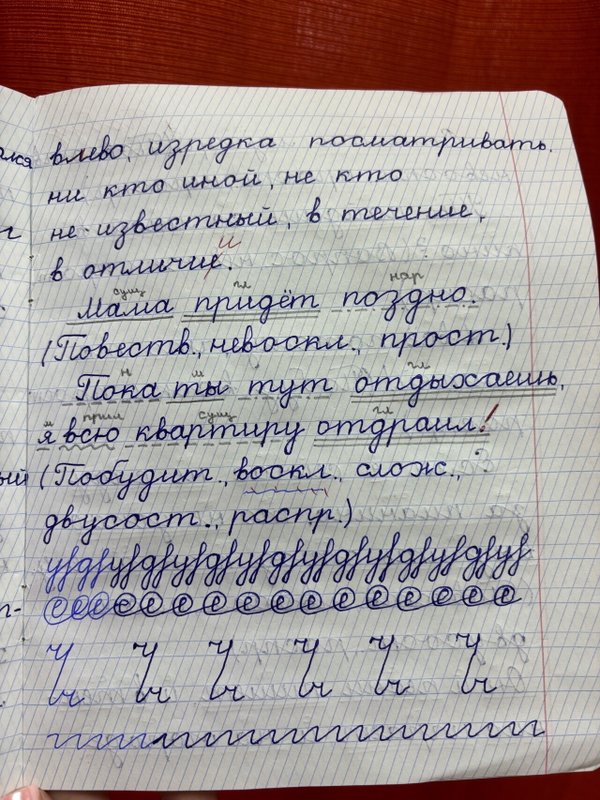 влево, изредка посматривать.
ни кто иной, не кто
не известный, в течение,
и
в отличие.
сущ гл нар
Мама придёт поздно.
(Повеств., невоскл., прост.)
н м гл
Пока ты тут отдыхаешь,
м прил сущ гл
я всю квартиру отдраил!
ый (Побудит., воскл., сложн.,
двусост., распр.)